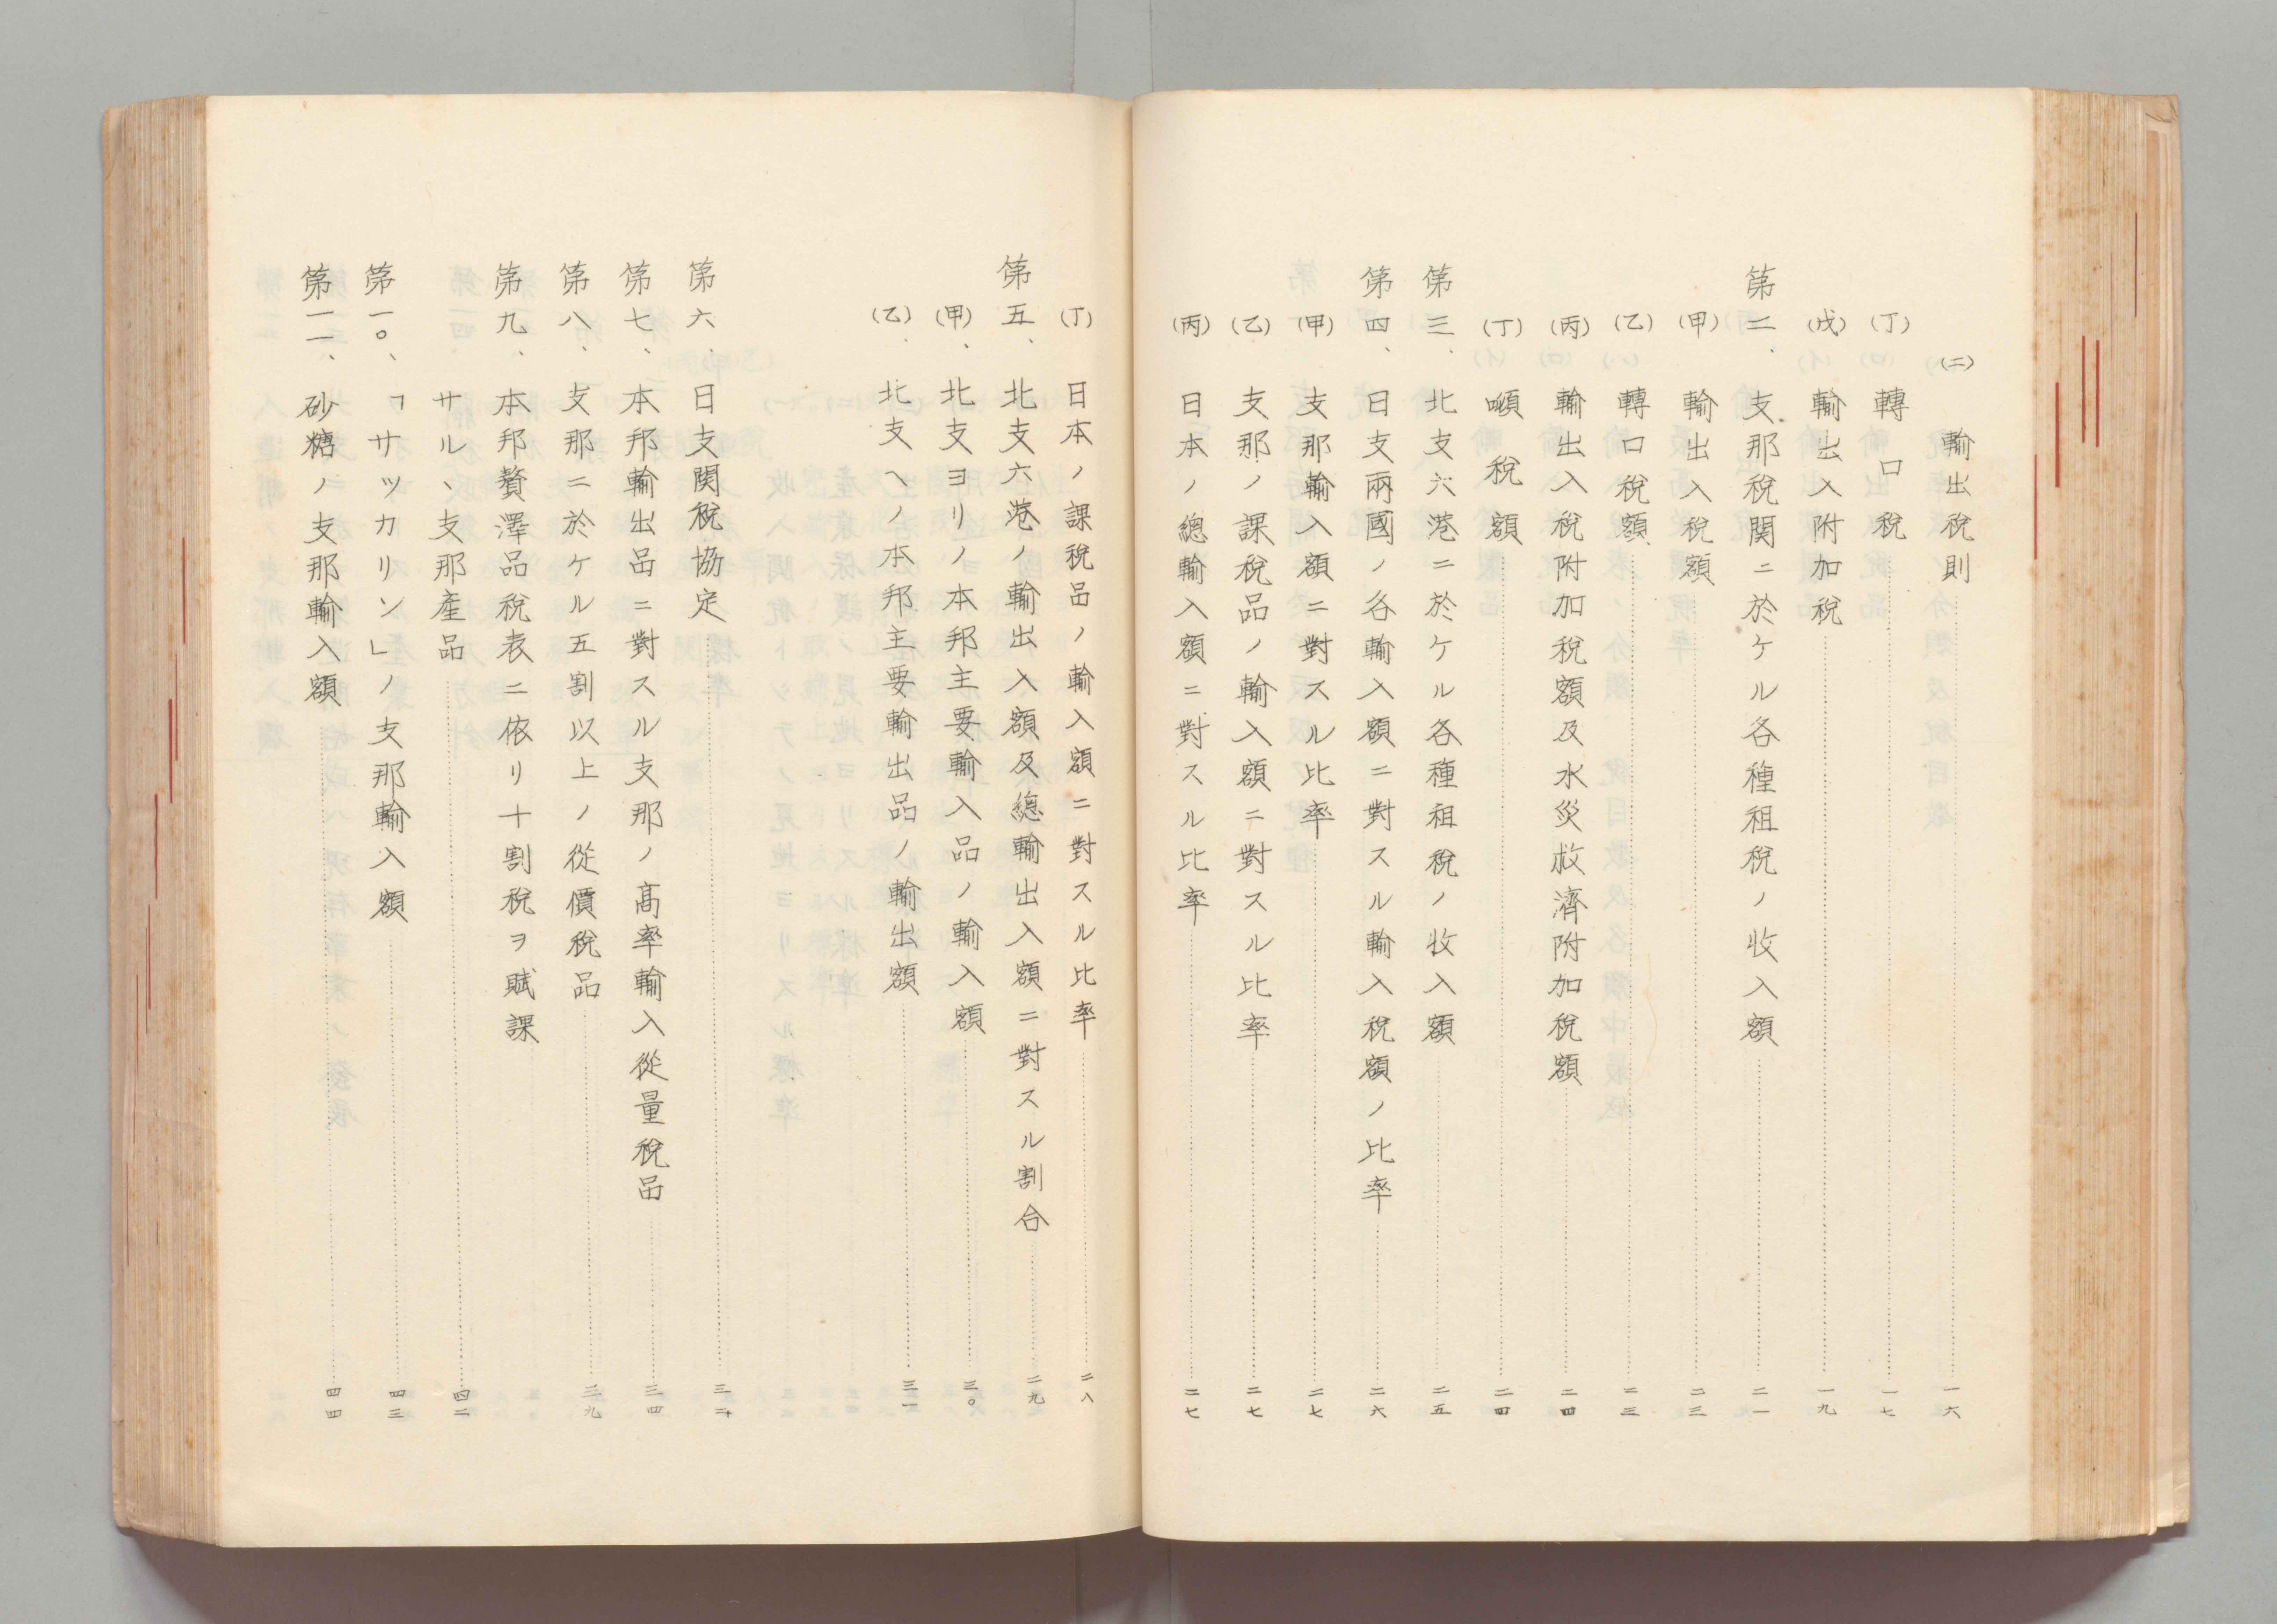 (二) 輸出稅則 一六
(丁) 轉口稅 一七
(戊) 輸出入附加稅 一九
第二、支那稅関ニ於ケル各種租稅ノ收入額 二一
(甲) 輸出入稅額 二三
(乙) 轉口稅額 二三
(丙) 輸出入稅附加稅額及水災救濟附加稅額 二四
(丁) 噸稅額 二四
第三、北支六港ニ於ケル各種租稅ノ收入額 二五
第四、日支兩國ノ各輸入額ニ對スル輸入稅額ノ比率 二六
(甲) 支那輸入額ニ對スル比率 二七
(乙) 支那ノ課稅品ノ輸入額ニ對スル比率 二七
(丙) 日本ノ總輸入額ニ對スル比率 二七
(丁) 日本ノ課稅品ノ輸入額ニ對スル比率 二八
第五、北支六港ノ輸出入額及總輸出入額ニ對スル割合 二九
(甲)、北支ヨリノ本邦主要輸入品ノ輸入額 三〇
(乙)、北支ヘノ本邦主要輸出品ノ輸出額 三一
第六、日支関稅協定 三二
第七、本邦輸出品ニ對スル支那ノ高率輸入從量稅品 三四
第八、支那ニ於ケル五割以上ノ從價稅品 三九
第九、本邦贅澤品稅表ニ依リ十割稅ヲ賦課
サル、支那產品 四二
第一〇、「サツカリン」ノ支那輸入額 四三
第一一、砂糖ノ支那輸入額 四四